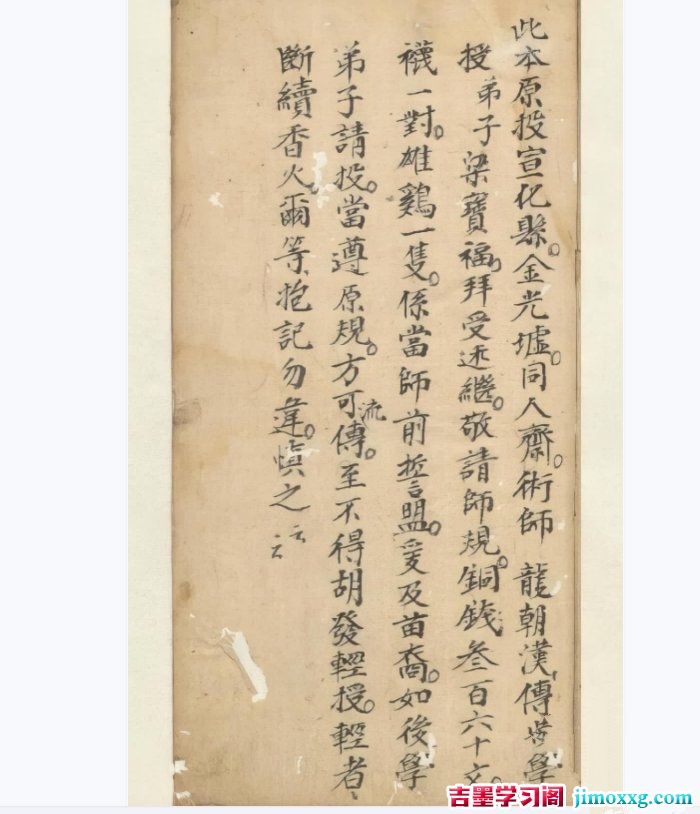 此本原投宣化縣。金光墟。同人齋。術師 龍朝漢。傳 學
投 弟子梁寶福。拜受 繼。敬請師規。銅錢叁百六十文。
襪一對。雄鷄一隻。係當師前誓盟。爰及苗裔。如後學
弟子請投。當遵原規。方可流傳。至不得胡發輕授。輕者
斷續香火。爾等抱記勿違。慎之 云云
吉墨学习阁 jimoxxg.com